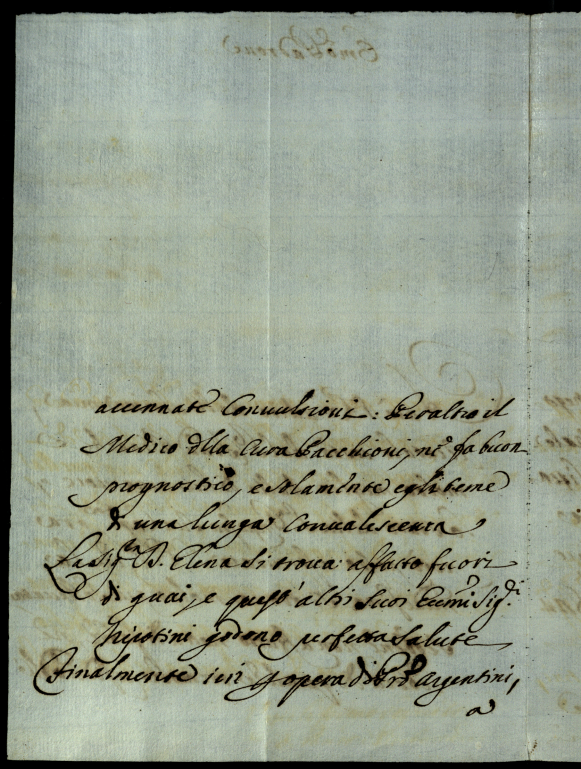 accennate Convulsioni: Peraltro il
Medico della Cura Pacchioni, ne fa buon
prognostico, e solamente egli teme
di una lunga Convalescenza
La Sig.ra D. Elena si trova affatto fuori
di guai, e quest' altri suoi Ecc.mi Sig.ri
Nipotini godono perfetta salute
Finalmente ieri opera di Argentini,
a